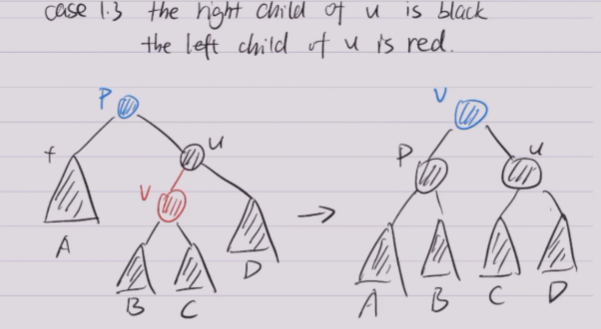 case 1.3 the right child of u is black
the left child of u is red.
P
V
+
u
P
u
V
A
D
B
C
A
B
C
D